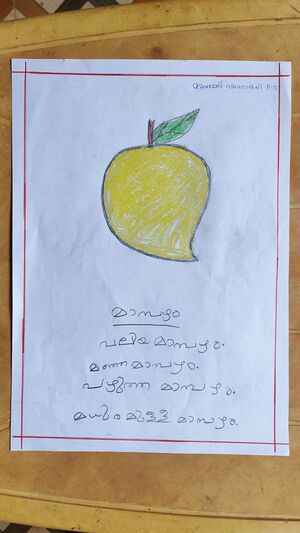 മാമ്പഴം
വലിയ മാമ്പഴം.
മഞ്ഞ മാമ്പഴം.
പഴുത്ത മാമ്പഴം.
മധുരമുള്ള മാമ്പഴം.